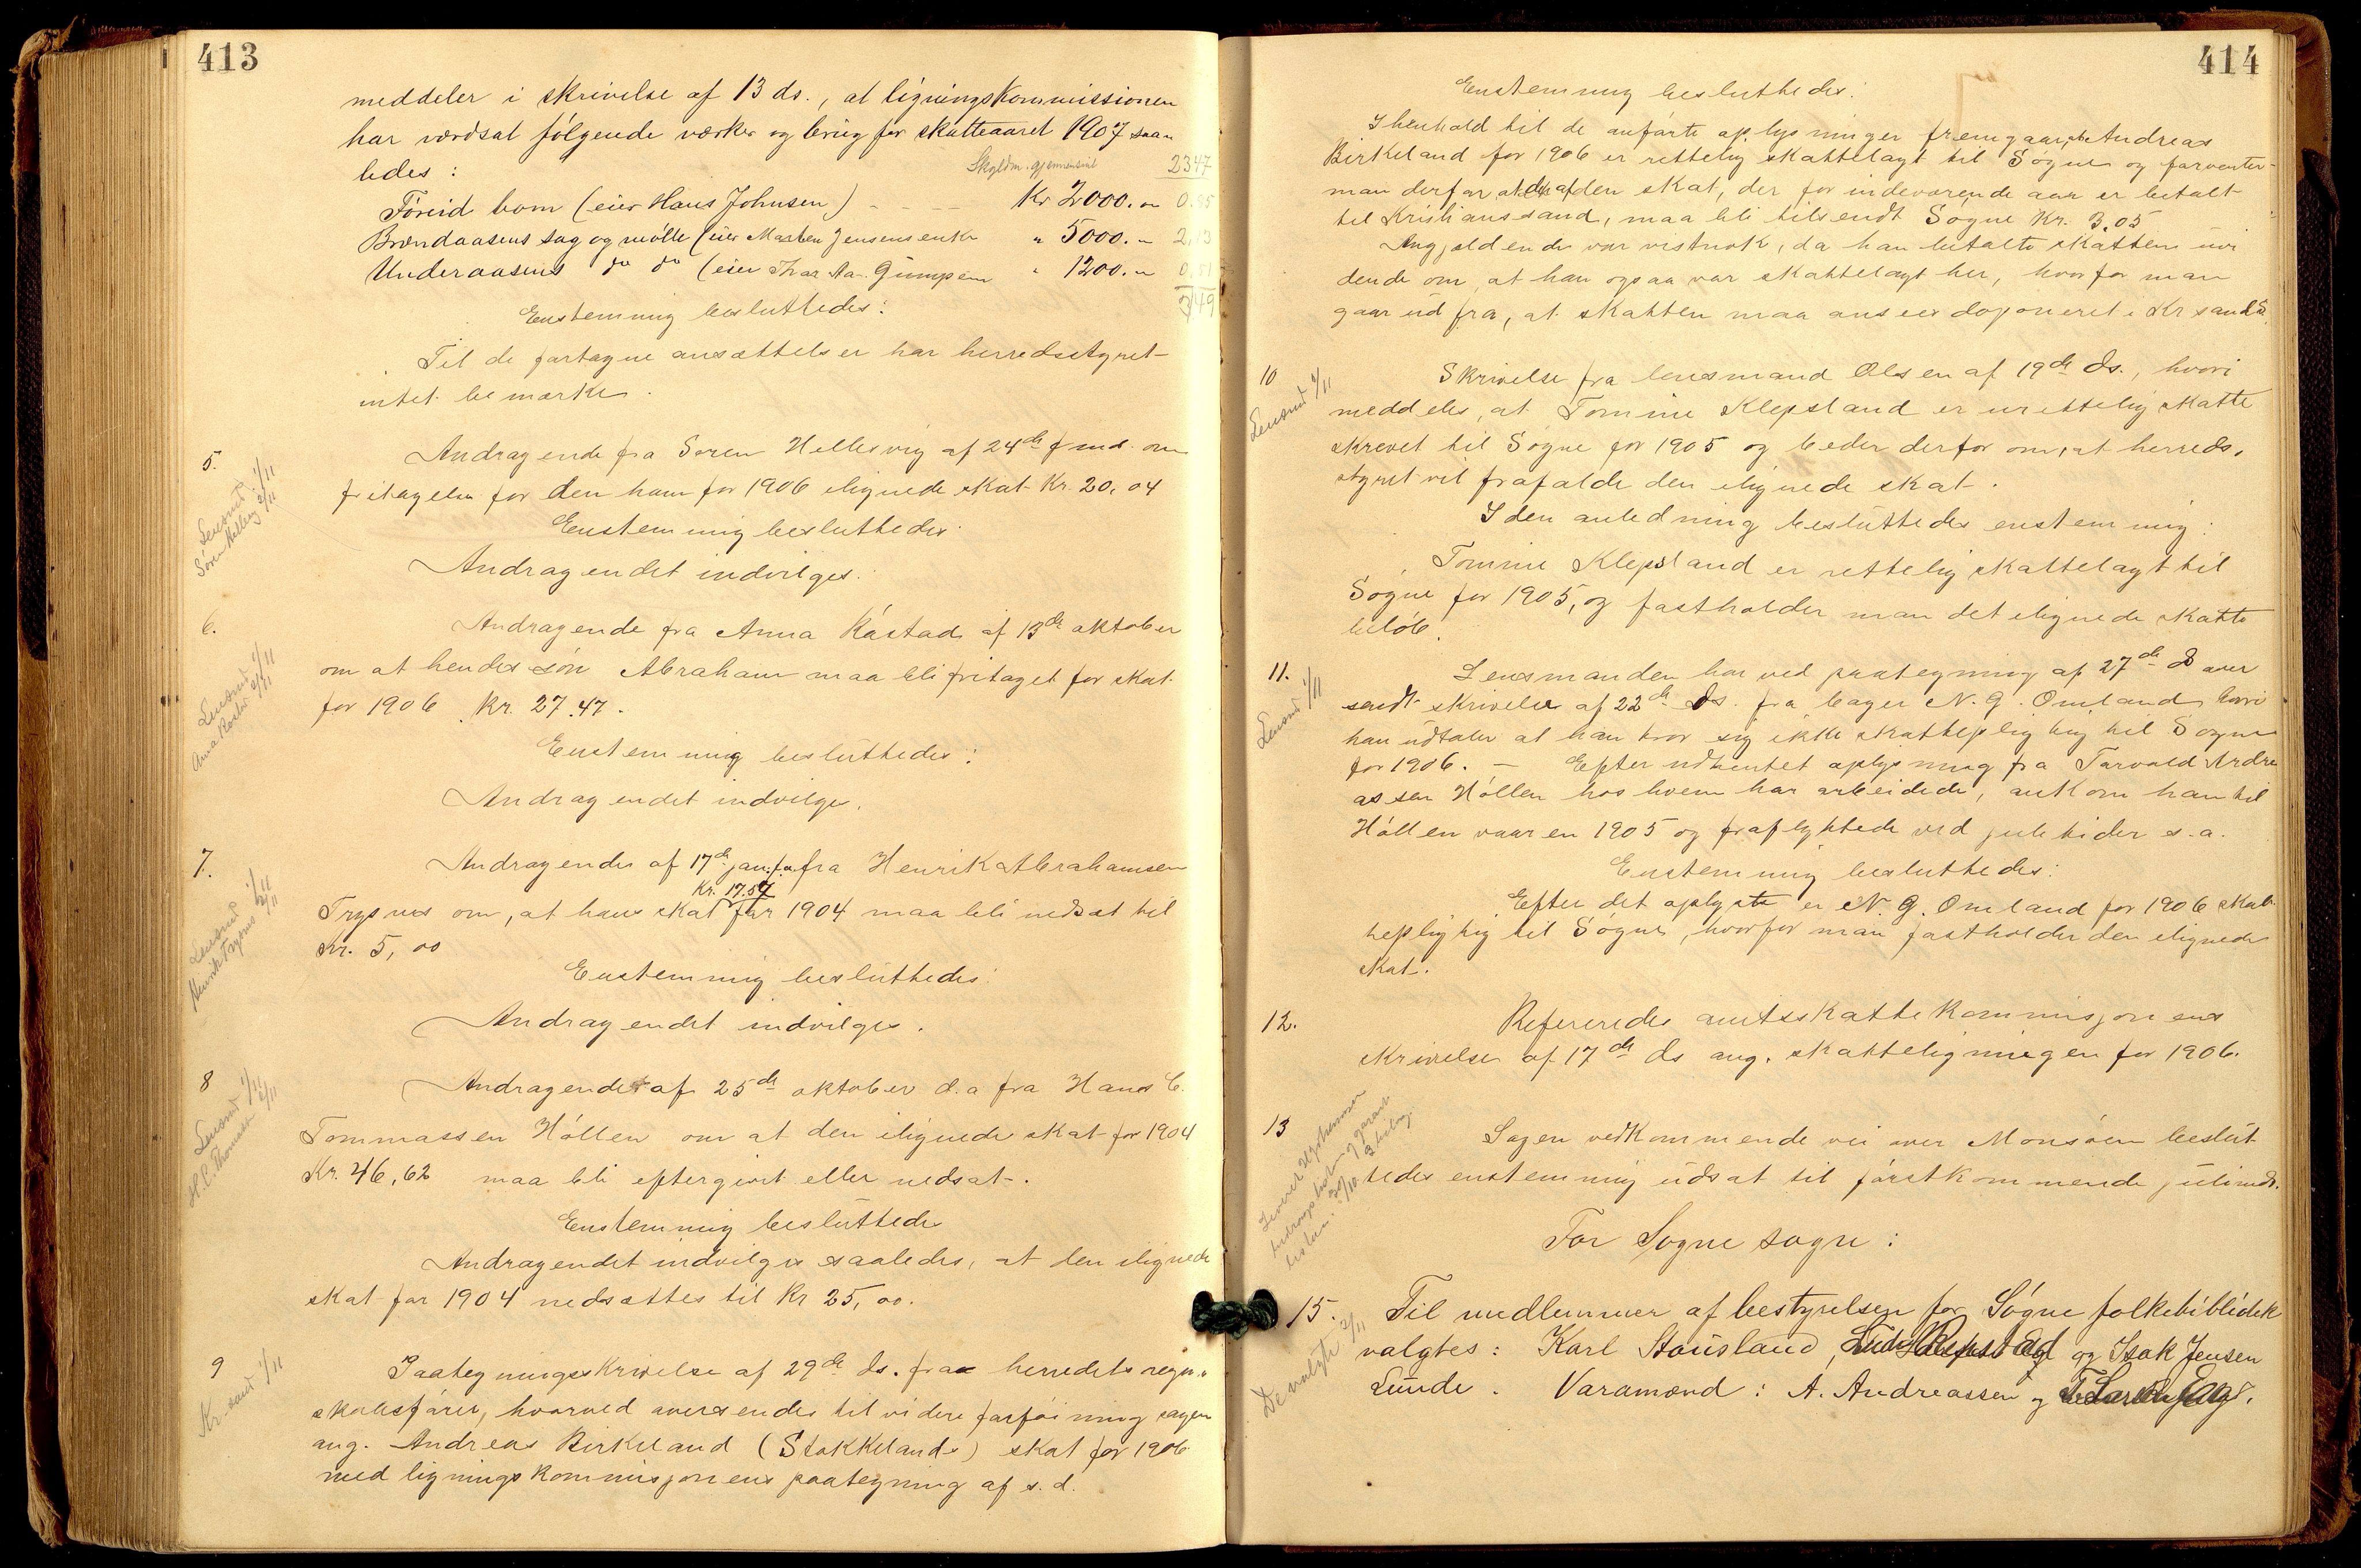 413
meddeler i skrivelse af 13 ds., at ligningskommissionen
har værdsat følgende værker og brug for skatteaaret 1907 saa-
ledes :
Skyldm. gjennemsnit 2347
Føreid bom (eier Hans Johnsen) - - - Kr 2000.
Brændaasens sag og mølle (eier Marten Jensens enke " 5000. 2,13
Underaasens do do (eier Thar Aa. Gumpen " 1200.
349
Enstemmig besluttedes :
Til de fortagne ansættelser har herredsstyret
intet bemærke .
5.
Lensmd. 1/11
Søren Hellevig 2/11
Andragende fra Søren Hellesvig af 24de f md. om
fritagelse for den ham for 1906 ilignede skat Kr. 20,04
Enstemmig besluttedes
Andragendet indvilges.
6.
Lensmd 1/11
Anna Røsta 2/11
Andragende fra Anna Råstad af 13de oktober
om at hendes søn Abraham maa bli fritaget for skat
for 1906 Kr. 27.47.
Enstemmig besluttedes :
Andragendet indvilges.
7.
Lensmd 1/11
Henrik Trysnes 2/11
Andragende af 17de jan. f.a. fra Henrik Abrahamsen
Kr. 17.57
Trysnes om, at hans skat for 1904 maa bli nedsat til
Kr. 5,00
Enstemmig besluttedes :
Andragendet indvilges .
8
Lensmd 1/11
H.C. Thomassen 2/11
Andragendet af 25de oktober d.a fra Hans C.
Tommassen Høllen om at den ilignede skat for 1904
Kr. 46,62 maa bli eftergivet eller nedsat .
Enstemmig besluttedes
Andragendet indvilges saaledes, at den ilignede
skat for 1904 nedsættes til Kr 25,00.
9
Kr.sand 1/11
Paategningsskrivelse af 29de ds. fra herredets regn-
skabsfører, hvorved oversendes til videre forføining sagen
ang. Andreas Birkeland (Stokkelands) skat for 1906
med ligningskommisjonens paategning af s.d.
414
Enstemmig besluttedes :
I henhold til de anførte oplysninger fremgaar, at Andreas
Birkeland for 1906 er rettelig skattelagt til Søgne og forventer
man derfor at der af den skat, der for indeværende aar er betalt
til Kristianssand, maa bli tilsendt Søgne Kr. 3,05
Angjældende var vistnok, da han betalte skatten uvi
dende om, at han ogsaa var skattelagt her, hvorfor man
gaar ud fra, at skatten maa ansees deponeret i Kr sand S.
10
Lensmd 1/11
Skrivelse fra lensmand Olsen af 19de ds., hvori
meddeles, at Tomine Klepsland er urettelig skatte
skrevet til Søgne for 1905 og beder derfor om, at herreds-
styret vil frafalde den ilignede skat .
I den anledning besluttedes enstemmig :
Tomine Klepsland er rettelig skattelagt til
Søgne for 1905, og fastholder man det ilignede skatte
beløb.
11.
Lensmd 1/11
Lensmanden har ved paategning af 27de ds over
sendt skrivelse af 22de ds. fra bager N. G. Omland, hvori
han udtaler at han tror sig ikke skattepligtig til Søgne
for 1906. - Efter udhentet oplysning fra Tarvald Andre
assen Høllen hos hvem har arbeidede, ankom han til
Høllen vaaren 1905 og fraflyttede ved juletider s.a.
Enstemmig besluttedes :
Efter det oplyste er N. G. Omland for 1906 skat-
tepligtig til Søgne, hvorfor man fastholder den ilignede
skat.
12.
Refereredes amtsskattekommisjonens
skrivelse af 17de ds ang. skatteligningen for 1906.
13
30/10 3 bilag
Sagen vedkommende vei over Monsøen beslut
tedes enstemmig udsat til førstkommende julimd.
For Søgne sogn :
15.
De valgte 2/11
Til medlemmer af bestyrelsen for Søgne folkebibliotek
valgtes : Karl Stousland, Repstad og Isak Jensen
Lunde . Varamænd : A. Andreassen og